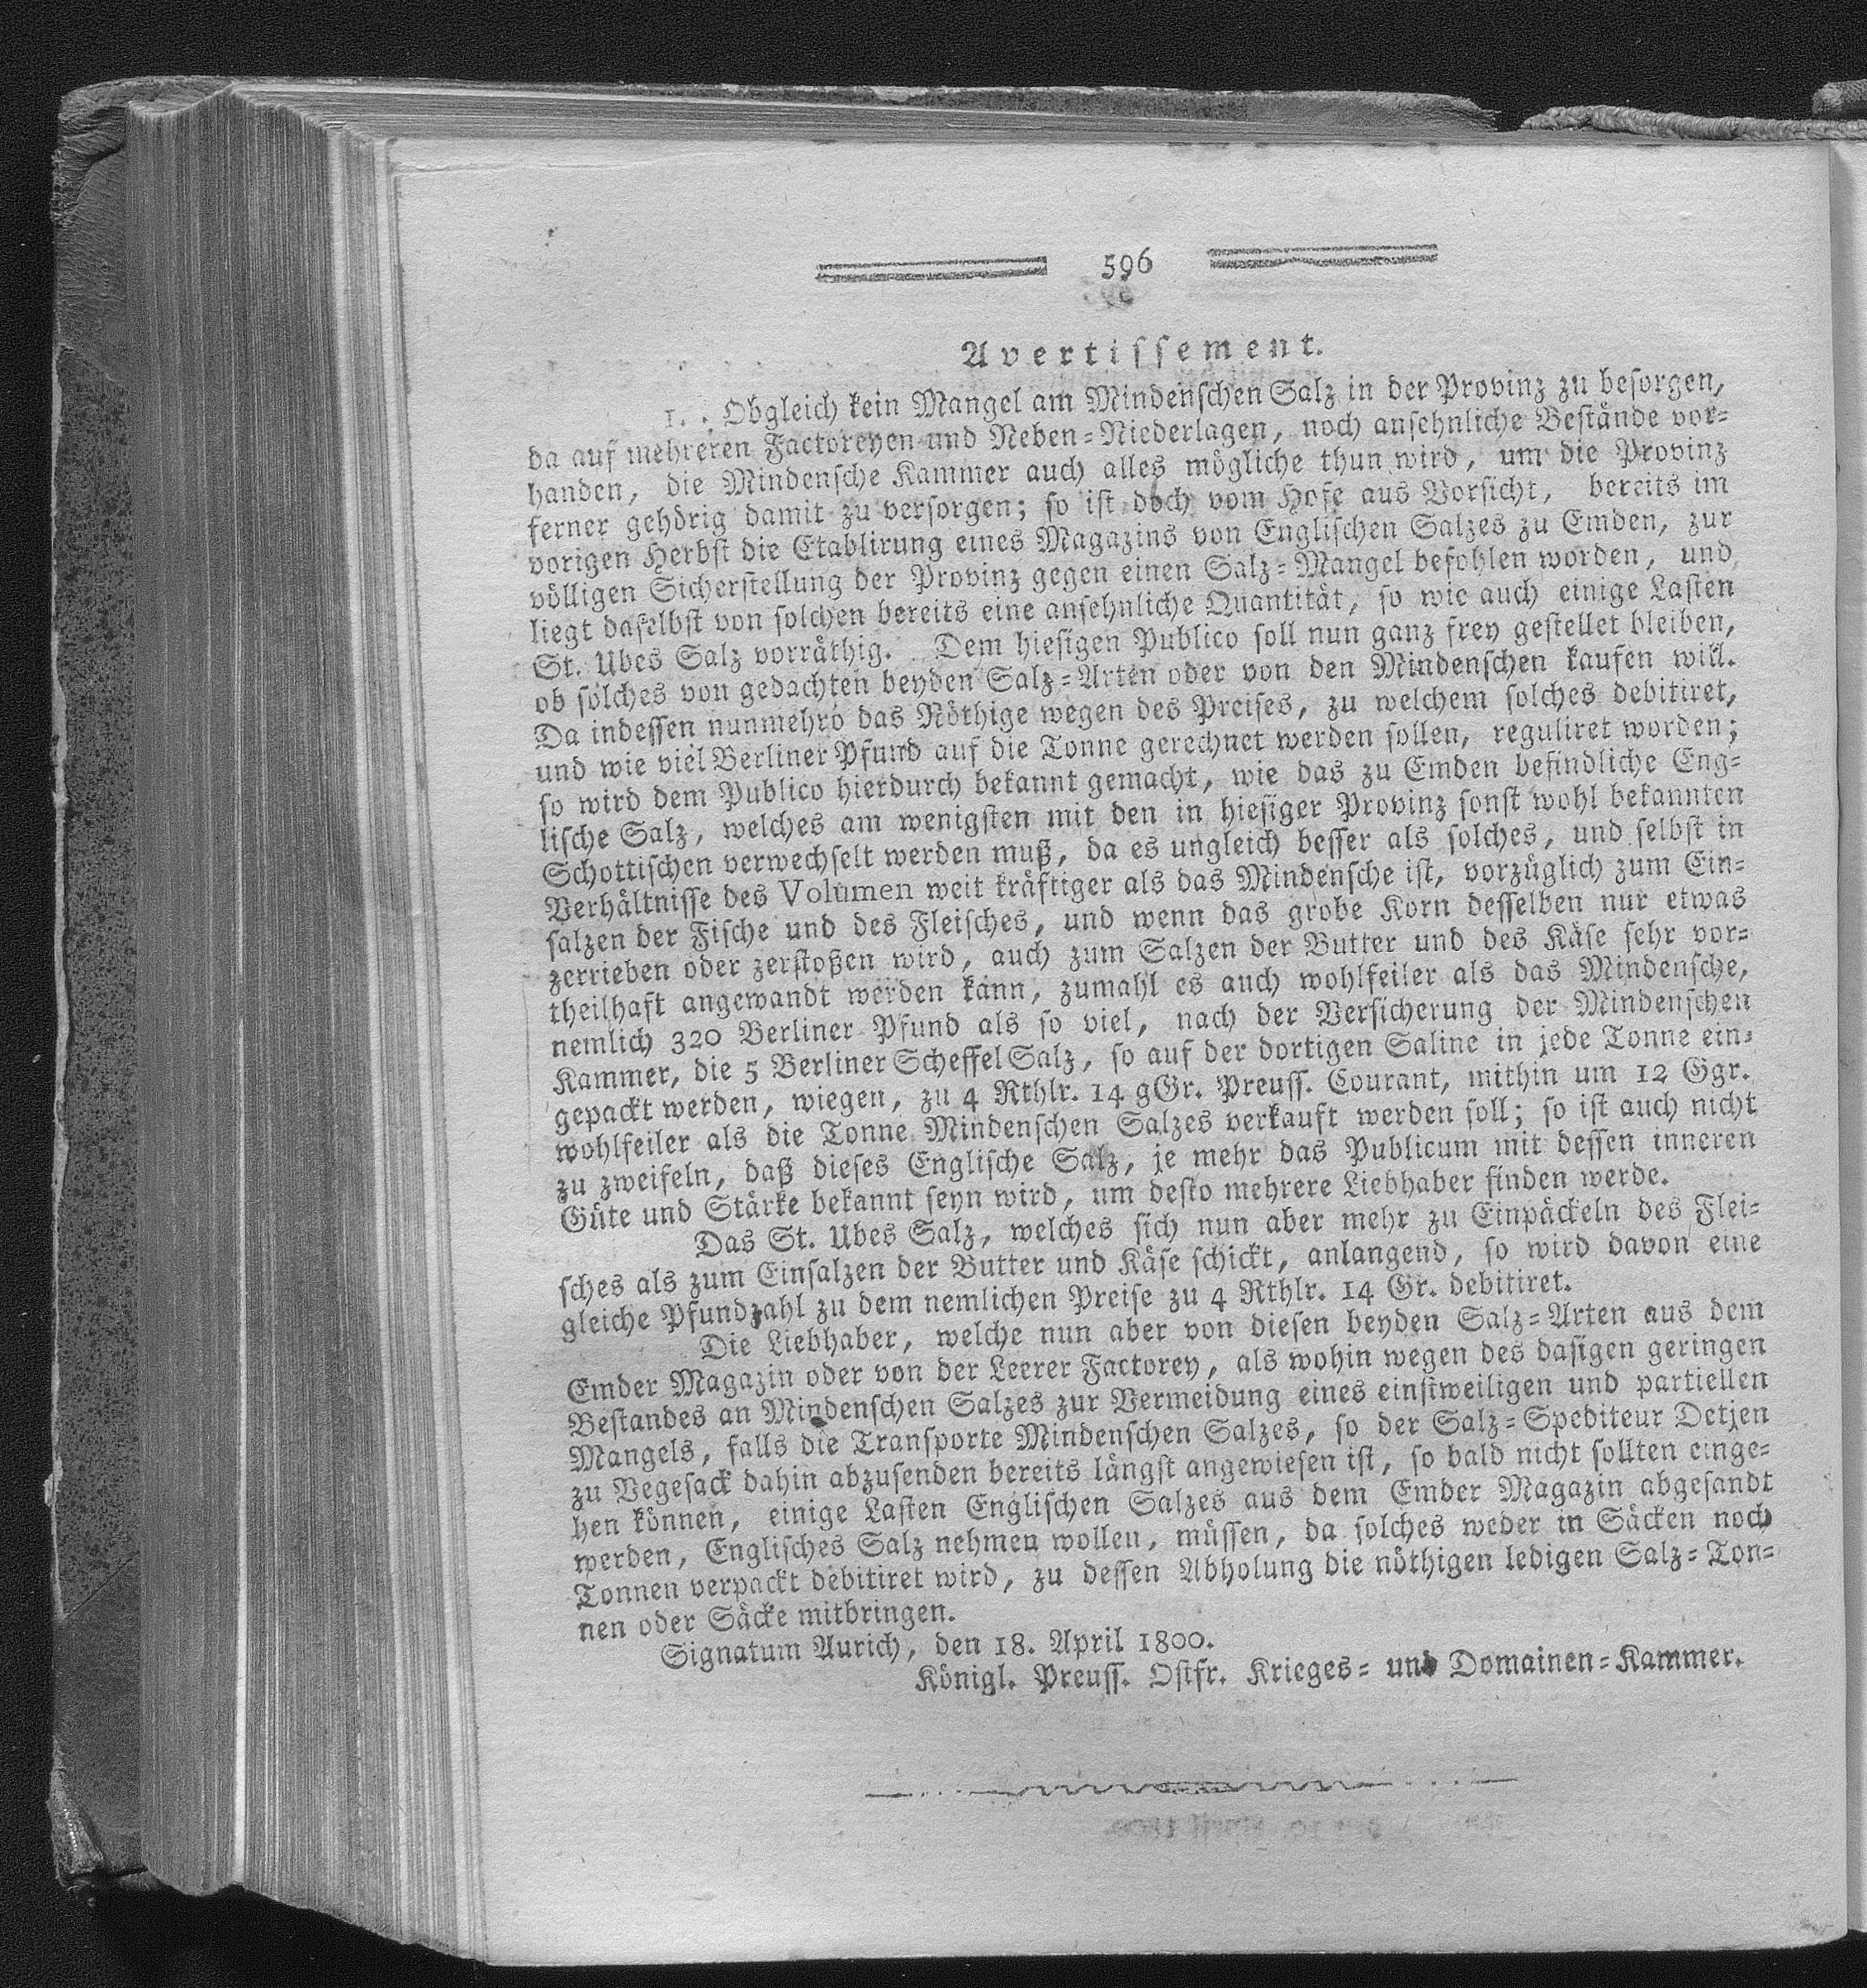 596
Avertissement.
1. Obgleich kein Mangel am Mindenschen Salz in der Provinz zu besorgen,
da auf mehreren Factoreyen und Neben-Niederlagen, noch ansehnliche Bestände vor-
handen, die Mindensche Kammer auch alles mögliche thun wird, um die Provinz
ferner gehörig damit zu versorgen; so ist doch vom Hofe aus Vorsicht, bereits im
vorigen Herbst die Etablirung eines Magazins von Englischen Salzes zu Emden, zur
völligen Sicherstellung der Provinz gegen einen Salz-Mangel befohlen worden, und
liegt daselbst von solchen bereits eine ansehnliche Quantität, so wie auch einige Lasten
St. Ubes Salz vorräthig. Dem hiesigen Publico soll nun ganz frey gestellet bleiben,
ob solches von gedachten beyden Salz-Arten oder von den Mindenschen kaufen will.
Da indessen nunmehro das Nöthige wegen des Preises, zu welchem solches debitiret,
und wie viel Berliner Pfund auf die Tonne gerechnet werden sollen, reguliret worden;
so wird dem Publico hierdurch bekannt gemacht, wie das zu Emden befindliche Eng-
lische Salz, welches am wenigsten mit den in hiesiger Provinz sonst wohl bekannten
Schottischen verwechselt werden muß, da es ungleich besser als solches, und selbst in
Verhältnisse des Volumen weit kräftiger als das Mindensche ist, vorzüglich zum Ein-
salzen der Fische und des Fleisches, und wenn das grobe Korn desselben nur etwas
zerrieben oder zerstoßen wird, auch zum Salzen der Butter und des Käse sehr vor-
theilhaft angewandt werden kann, zumahl es auch wohlfeiler als das Mindensche,
nemlich 320 Berliner Pfund als so viel, nach der Versicherung der Mindenschen
Kammer, die 5 Berliner Scheffel Salz, so auf der dortigen Saline in jede Tonne ein-
gepackt werden, wiegen, zu 4 Rthlr. 14 gGr. Preuss. Courant, mithin um 12 Ggr.
wohlfeiler als die Tonne Mindenschen Salzes verkauft werden soll; so ist auch nicht
zu zweifeln, daß dieses Englische Salz, je mehr das Publicum mit dessen inneren
Güte und Stärke bekannt seyn wird, um desto mehrere Liebhaber finden werde.
Das St. Ubes Salz, welches sich nun aber mehr zu Einpäckeln des Flei-
sches als zum Einsalzen der Butter und Käse schickt, anlangend, so wird davon eine
gleiche Pfundzahl zu dem nemlichen Preise zu 4 Rthlr. 14 Gr. debitiret.
Die Liebhaber, welche nun aber von diesen beyden Salz-Arten aus dem
Emder Magazin oder von der Leerer Factorey, als wohin wegen des dasigen geringen
Bestandes an Mindenschen Salzes zur Vermeidung eines einstweiligen und partiellen
Mangels, falls die Transporte Mindenschen Salzes, so der Salz-Spediteur Detjen
zu Vegesack dahin abzusenden bereits längst angewiesen ist, so bald nicht sollten einge-
hen können, einige Lasten Englischen Salzes aus dem Emder Magazin abgesandt
werden, Englisches Salz nehmen wollen, müssen, da solches weder in Säcken noch
Tonnen verpackt debitiret wird, zu dessen Abholung die nöthigen ledigen Salz-Ton-
nen oder Säcke mitbringen.
Signatum Aurich, den 18. April 1800.
Königl. Preuss. Ostfr. Krieges- und Domainen-Kammer.